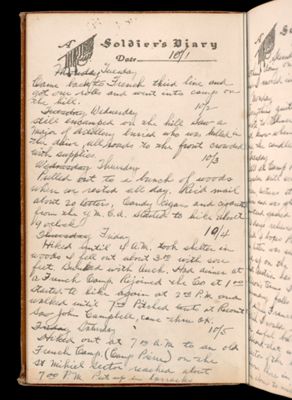 A Soldier's Diary
Date 10/1
Monday Tuesday
Came back to French third line and
got our rolls and went into camp on
the hill.
Tuesday Wednesday 10/2
Still encamped on the hill Saw a
Major of Artillery buried who was killed
the door, all roads to the front crowded
with supplies. 10/3
Wednesday Thursday
Pulled out to a bunch of woods
when we rested all day, Recd mail
about 20 letters, Candy cigars and cigarettes
from the Y.M.C.A. started to hike about
9 oclock
Thursday Friday 10/4
Hiked until 4 A.M. took shelter in
woods I fell out about 3 with sore
feet. Bunked with Auch. Had dinner at
a French Camp Rejoined the Co at 1
started to hike again at 2 P.M. and
walked until 7 Pitched tents at
Saw John Campbell, came thru OK.
Friday Saturday 10/5
Hiked out at 7 A.M. to an old
French Camp. (Camp Pierre) on the
St Mihiel Sector reached about
7 P.M. Put up in barracks